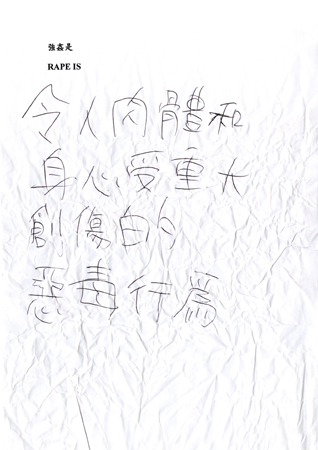 強姦是
RAPE IS
令人肉體和
身心受重大
創傷的
惡毒行為